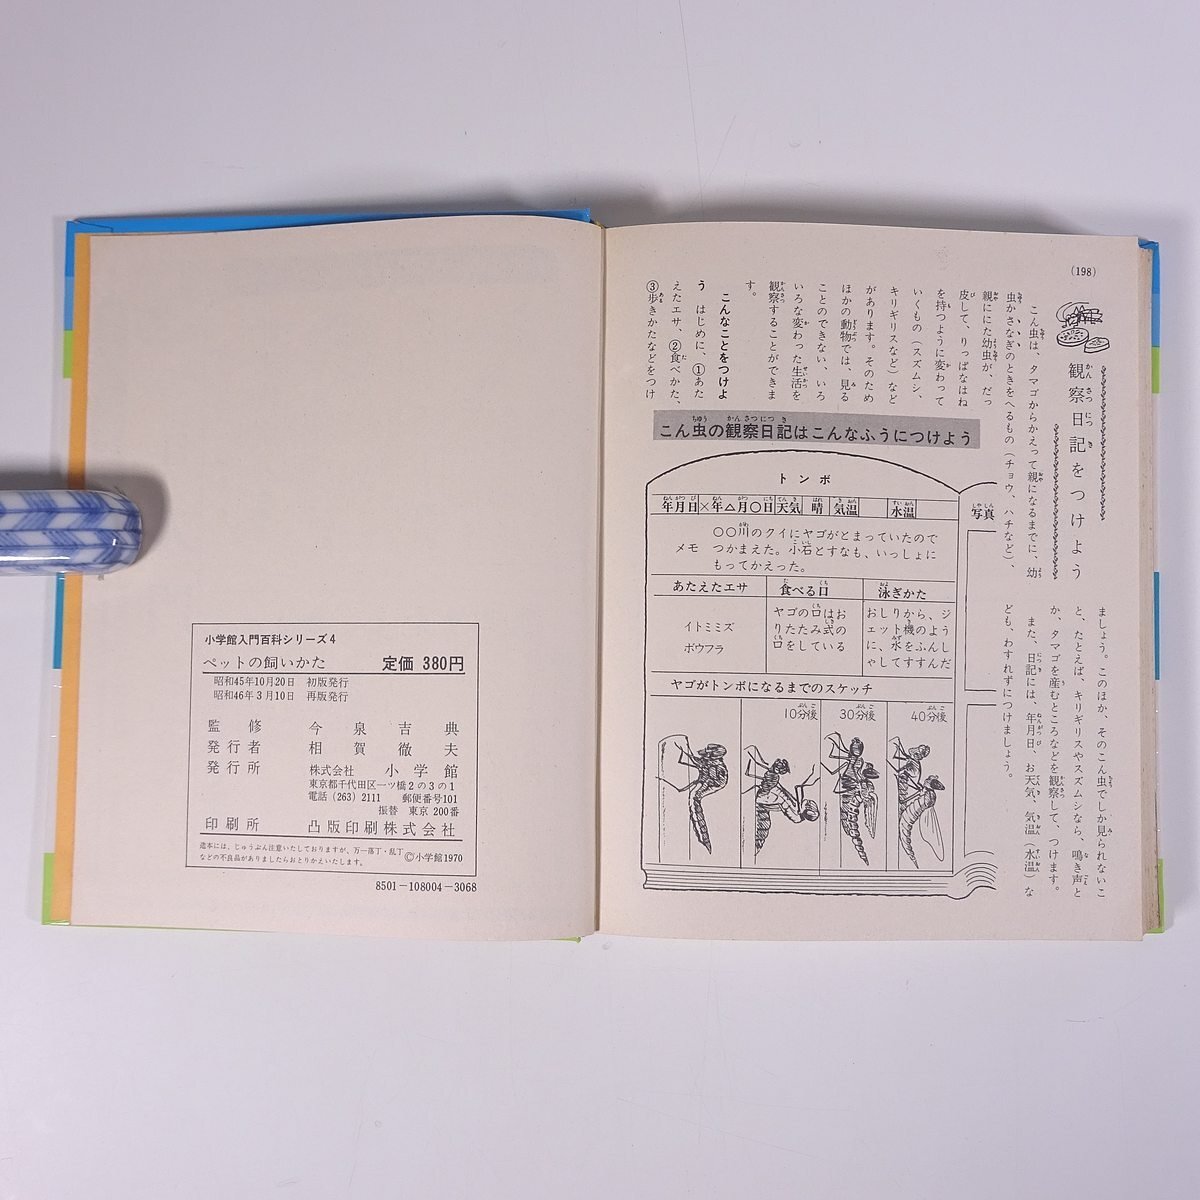 (198)
観察日記をつけよう
こん虫は、タマゴからかえって親になるまでに、幼
虫かさなぎのときをへるもの（チョウ、ハチなど）、
親ににた幼虫が、だっ
皮して、りっぱなはね
を持つように変わって
いくもの（スズムシ、
キリギリスなど）など
があります。そのため
ほかの動物では、見る
ことのできない、いろ
いろな変わった生活を
観察することができま
す。
こんなことをつけよ
う　はじめに、①あた
えたエサ、②食べかた、
③歩きかたなどをつけ
ましょう。このほか、そのこん虫でしか見られないこ
と、たとえば、キリギリスやスズムシなら、鳴き声と
か、タマゴを産むところなどを観察して、つけます。
また、日記には、年月日、お天気、気温（水温）な
ども、わすれずにつけましょう。
こん虫の観察日記はこんなふうにつけよう
トンボ
年月日 ×年△月○日 天気 晴 気温 水温
写真
メモ
○○川のクイにヤゴがとまっていたので
つかまえた。小石とすなも、いっしょに
もってかえった。
あたえたエサ 食べる口 泳ぎかた
イトミミズ
ボウフラ
ヤゴの口はお
りたたみ式の
口をしている
おしりから、ジ
ェット機のよう
に、水をふんし
ゃしてすすんだ
ヤゴがトンボになるまでのスケッチ
10分後 30分後 40分後
小学館入門百科シリーズ4
ペットの飼いかた 定価 380円
昭和45年10月20日 初版発行
昭和46年3月10日 再版発行
監修 今泉吉典
発行者 相賀徹夫
発行所 株式会社 小学館
東京都千代田区一ツ橋2の3の1
電話 (263) 2111 郵便番号101
振替 東京 200番
印刷所 凸版印刷株式会社
造本には、じゅうぶん注意いたしておりますが、万一落丁・乱丁
などの不良品がありましたらおとりかえいたします。
©小学館1970
8501-108004-3068